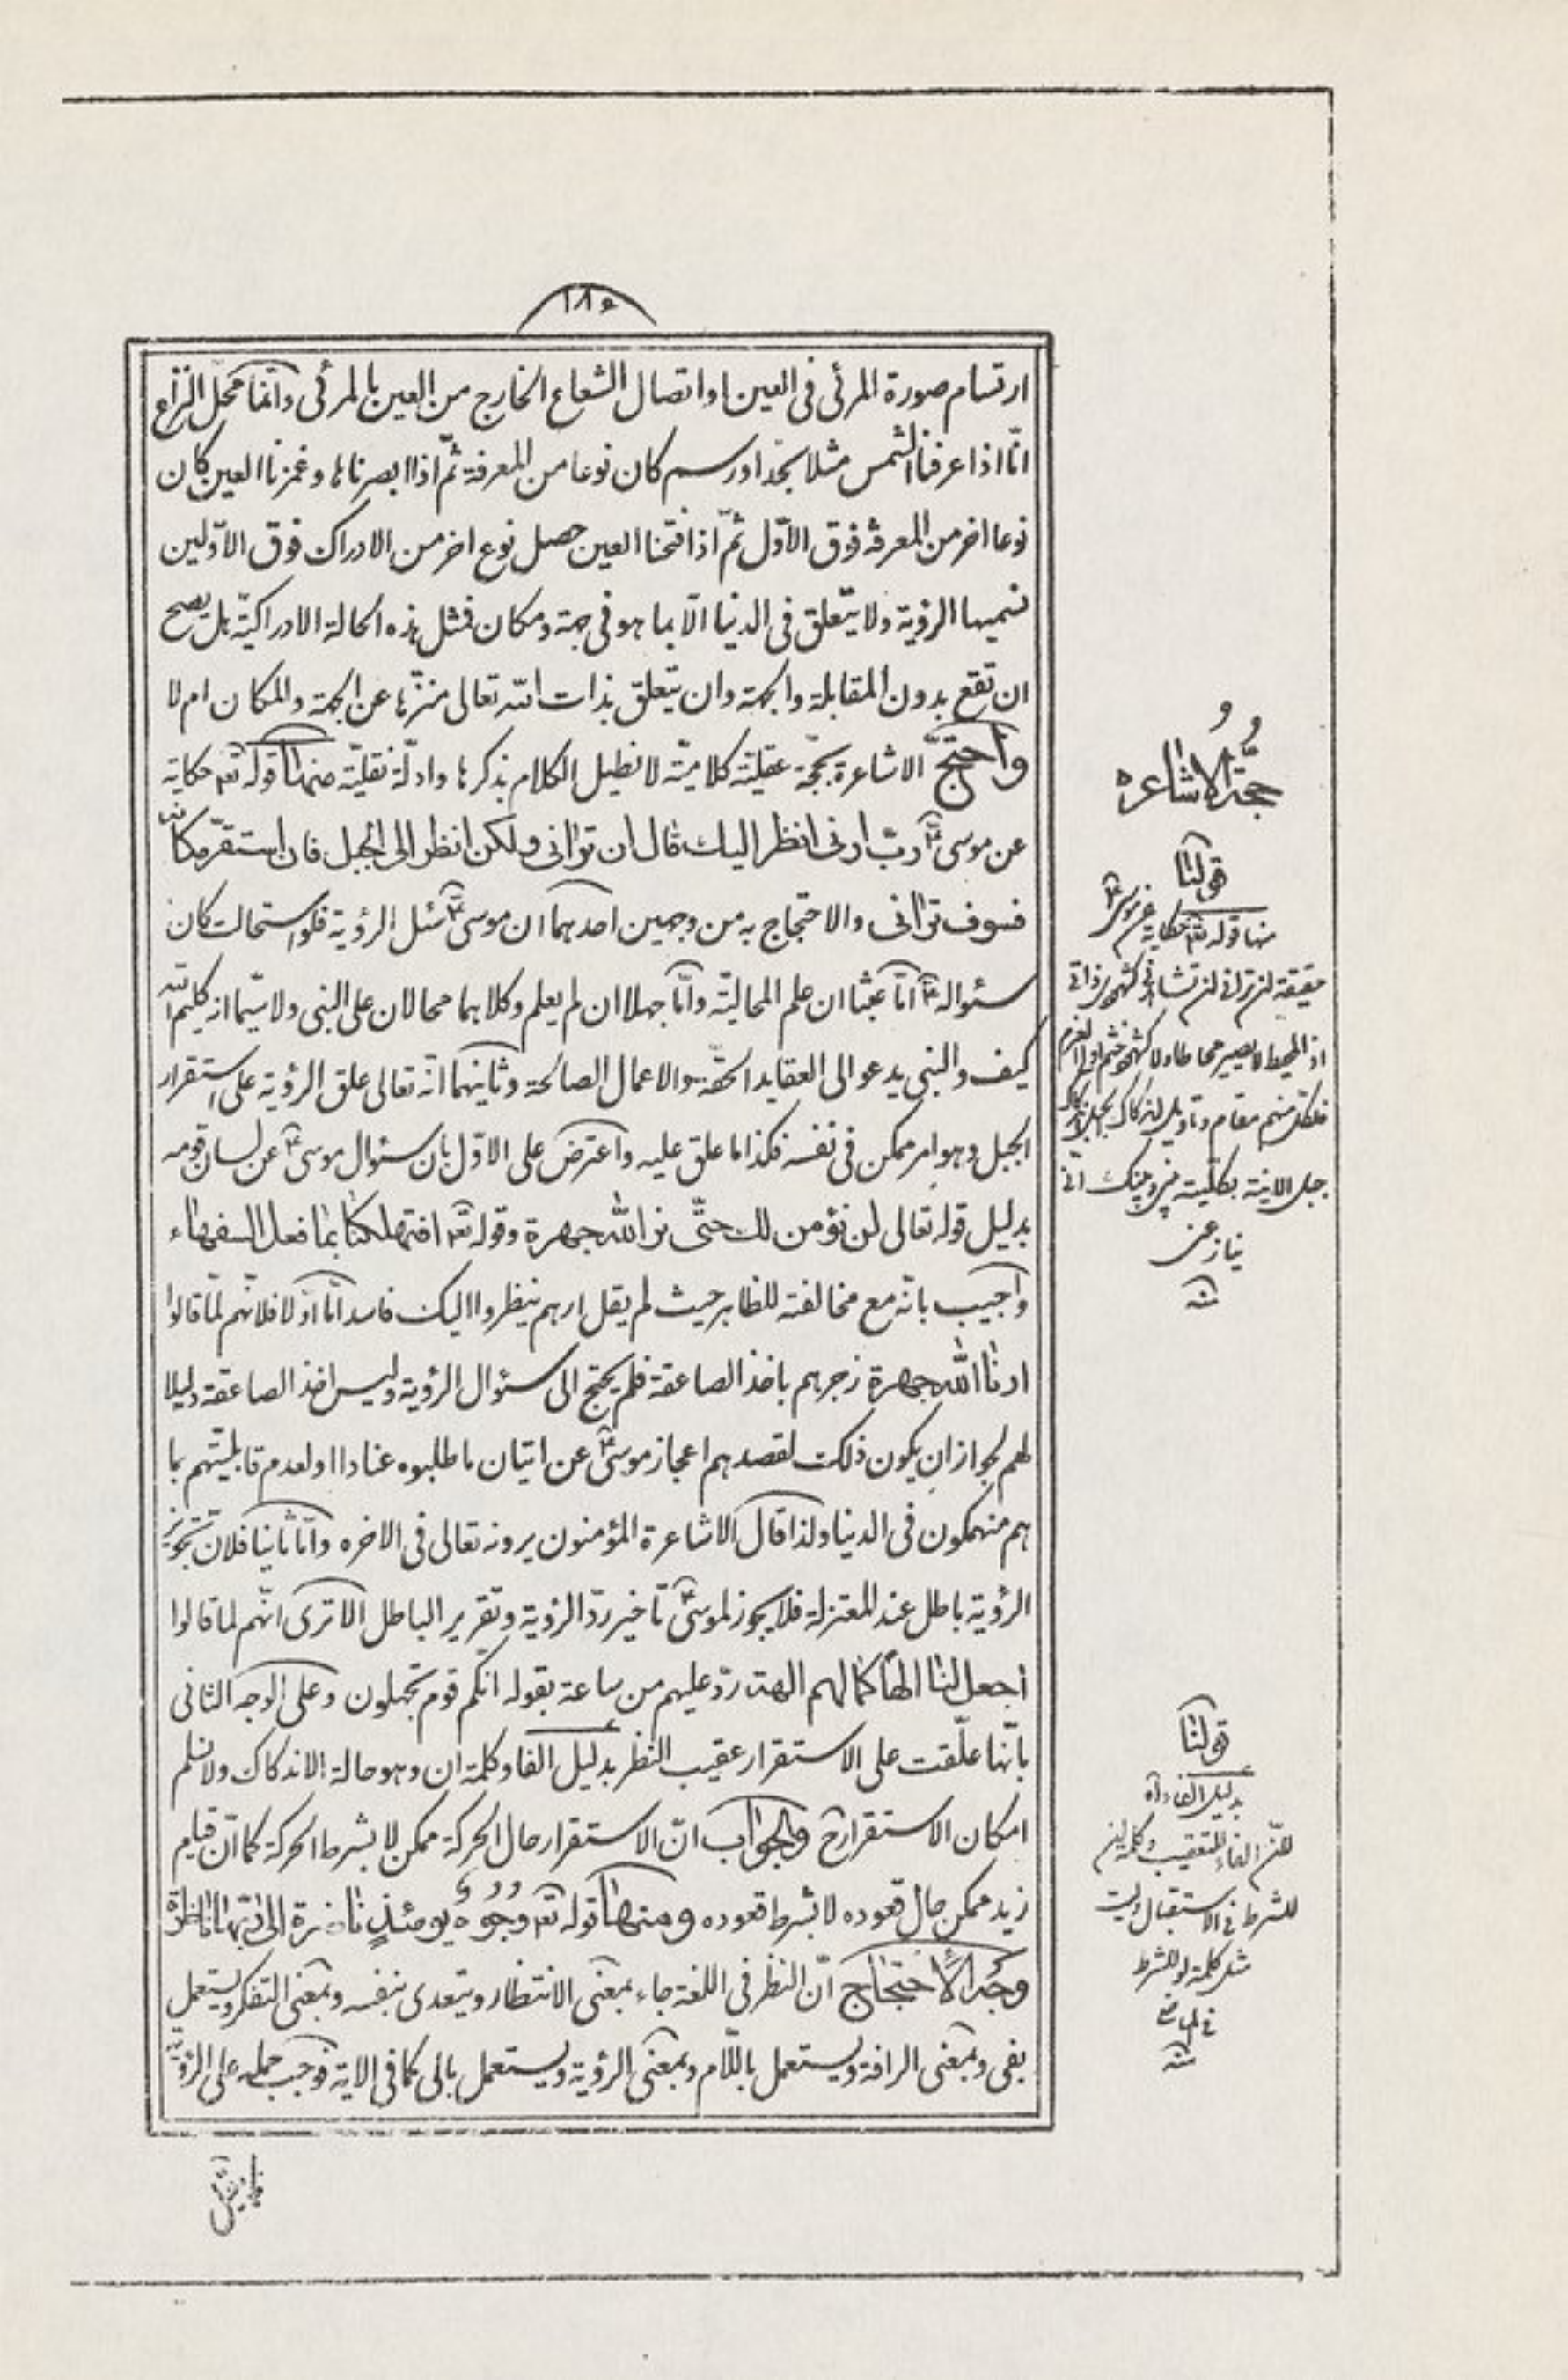 ١٨٥
ارتسام صورة المرئى فى العين او اتصال الشعاع الخارج من العين بالمرئى وانما محل النزاع
انّا اذا عرفنا الشمس مثلا بحد او رسم كان نوعا من المعرفة ثمّ اذا ابصرناها وغمزنا العين كان
نوعا اخر من المعرفة فوق الاوّل ثمّ اذا فتحنا العين حصل نوع اخر من الادراك فوق الاوّلين
نسميها الرؤية ولا يتعلق فى الدنيا الّا بما هو فى جهة ومكان فمثل هذه الحالة الادراكيّة هل يصح
ان تقع بدون المقابلة والجهة وان يتعلق بذات الله تعالى منزّها عن الجهة والمكان ام لا
واحتجّ الاشاعرة بحجّة عقليّة كلاميّة لا نطيل الكلام بذكرها وادلّة نقليّة منها قوله تعه حكاية
عن موسىؑ ربّ ارنى انظر اليك قال لن ترانى ولكن انظر الى الجبل فان استقرّ مكانه
فسوف ترانى والاحتجاج به من وجهين احدهما ان موسىؑ سئل الرؤية فلو استحالت كان
سئوالهؑ امّا عبثا ان علم المحاليّة وامّا جهلا ان لم يعلم وكلاهما محالان على النبى ولا سيّما انه كليم الله
كيف والنبى يدعو الى العقايد الحقّة والاعمال الصالحة وثانيهما انّه تعالى علق الرؤية على استقرار
الجبل وهو امر ممكن فى نفسه فكذا ما علق عليه واعترض على الاوّل بان سئوال موسىؑ عن لسان قومه
بدليل قوله تعالى لن نؤمن لك حتّى نر الله جهرة وقوله تعه افتهلكنا بما فعل السفهاء
واجيب بانّه مع مخالفته للظاهر حيث لم يقل ارهم ينظروا اليك فاسد امّا اوّلا فلانّهم لمّا قالوا
ارنا الله جهرة زجرهم باخذ الصاعقة فلم يحتج الى سئوال الرؤية وليس اخذ الصاعقة دليلا
لهم لجواز ان يكون ذلك لقصدهم اعجاز موسىؑ عن اتيان ما طلبوه عنادا او لعدم قابليّتهم بما
هم منهمكون فى الدنيا ولذا قال الاشاعرة المؤمنون يرونه تعالى فى الاخره وامّا ثانيا فلان تجويز
الرؤية باطل عند المعتزلة فلا يجوز لموسىؑ تاخير ردّ الرؤية وتقرير الباطل الا ترى انّهم لما قالوا
اجعل لنا الهًا كما لهم الهة ردّ عليهم من ساعة بقوله انّكم قوم تجهلون وعلى الوجه الثانى
بانّها علّقت على الاستقرار عقيب النظر بدليل الفا وكلمة ان وهو حالة الاندكاك ولا نسلم
امكان الاستقرار ح والجواب انّ الاستقرار حال الحركة ممكن لا بشرط الحركة كما انّ قيام
زيد ممكن حال قعوده لا بشرط قعوده ومنها قوله تعه وجوه يومئذٍ ناضرة الى ربّها ناظرة
وجه الاحتجاج انّ النظر فى اللغة جاء بمعنى الانتظار ويتعدى بنفسه وبمعنى التفكر ويستعمل
بفى وبمعنى الرافة ويستعمل باللّام وبمعنى الرؤية ويستعمل بالى كما فى الاية فوجب حمله على الرؤية
حجّة الاشاعره
قولنا
منها قوله تعه حكاية عن موسىؑ
حقيقة لن ترانى لن تشاهد كنه ذاتى
اذ المحيط لا يصير محاطا
فلكل منهم مقام وتاويل
جبل الانية بكليته
قولنا
بدليل الفاء اه
لانّ الفاء للتعقيب وكلمة ان
للشرط فى الاستقبال وليست
مثل كلمة لو للشرط
فى الماضى
منه